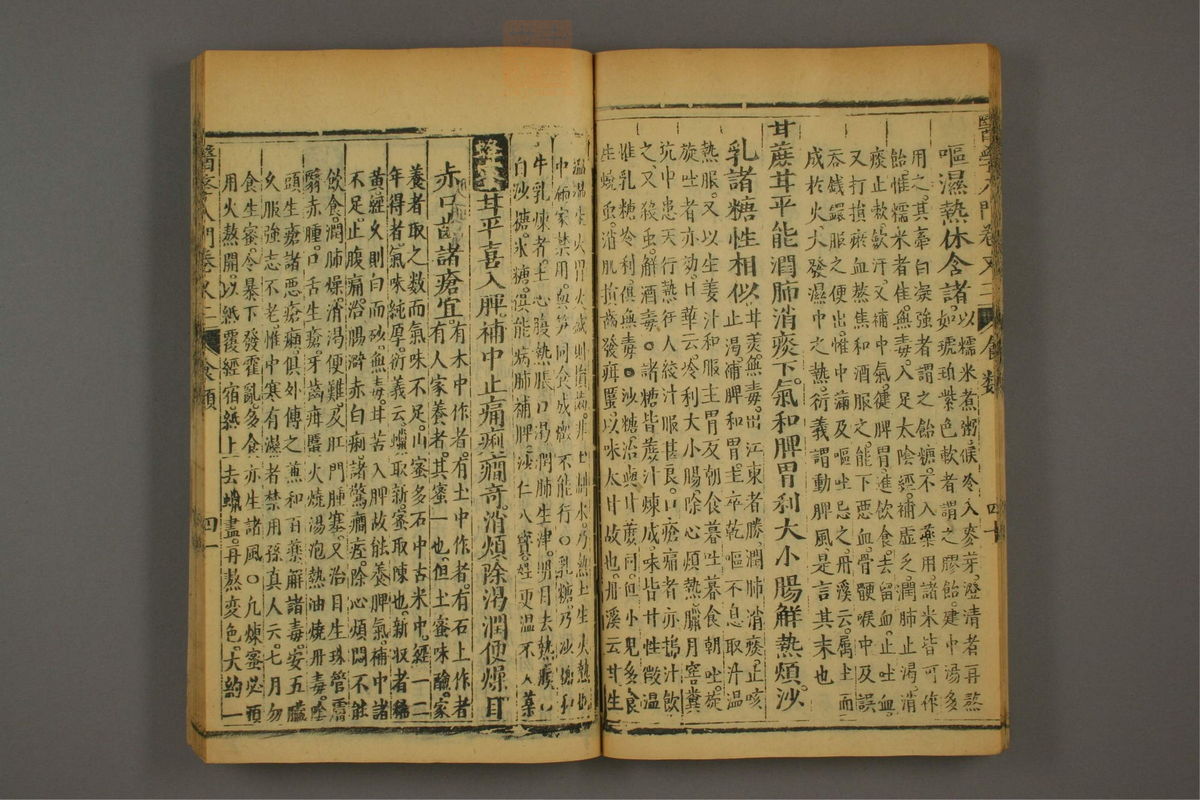 醫學入門卷又二 食類 四十
嘔濕熱休含諸以糯米煮粥候冷入麥芽澄清者再熬
如琥珀紫色軟者謂之膠飴建中湯多
用之其牽白凝強者謂之飴糖不入藥用諸米皆可作
飴惟糯米者佳無毒入足太陰經補虛乏潤肺止渴消
痰止嗽斂汗又補中氣健脾胃進飲食去留血止吐血
又打損瘀血熬焦和酒服之能下惡血骨骾喉中及誤
吞錢鐶服之便出惟中滿及嘔吐忌之丹溪云屬土而
成於火大發濕中之熱衍義謂動脾風是言其末也
甘蔗甘平能潤肺消痰下氣和脾胃利大小腸解熱煩沙
乳諸糖性相似甘美無毒出江東者勝潤肺消痰止咳
止渴補脾和胃主卒乾嘔不息取汁溫
熱服又以生姜汁和服主胃反朝食暮吐暮食朝吐旋
旋吐者亦効日華云冷利大小腸除心煩熱臘月窖糞
坑中患天行熱狂人絞汁服甚良口瘡痛者亦搗汁飲
之又殺虫解酒毒○諸糖皆蔗汁煉成味皆甘性微溫
惟乳糖冷利俱無毒○沙糖治與甘蔗同但小兒多食
生蟯虫消肌損齒發疳䘌以味太甘故也丹溪云甘生
中病家禁用與笋同食成癥不能行○乳糖乃沙糖和
牛乳煉者主心腹熱脹口渴潤肺生津明目去熱痰
白沙糖氷糖俱能
甘平喜入脾補中止痛痢癇奇消煩除渴潤便燥目
赤口齒諸瘡宜有木中作者有土中作者有石上作者
有人家養者其蜜一也但土蜜味醶家
養者取之數而氣味不足山蜜多石中古木中經一二
年得者氣味純厚衍義云蠟取新蜜取陳也新收者稀
黃經久則白而砂無毒甘苦入脾故能養脾氣補中諸
不足止腹痛治腸澼赤白痢諸驚癇痓除心煩悶不能
飲食潤肺燥消渴便難及肛門腫塞又治目生珠管膚
翳赤腫口舌生瘡牙齒疳䘌火燒湯泡熱油燒丹毒陰
頭生瘡諸惡瘡癩俱外傅之兼和百藥解諸毒安五臟
久服強志不老惟中寒有濕者禁用孫真人云七月勿
食生蜜令暴下發霍亂多食亦生諸風○凡煉蜜必須
用火熬開以紙覆經宿紙上去蠟盡再熬变色大約一
醫學入門卷又二 食類 四一